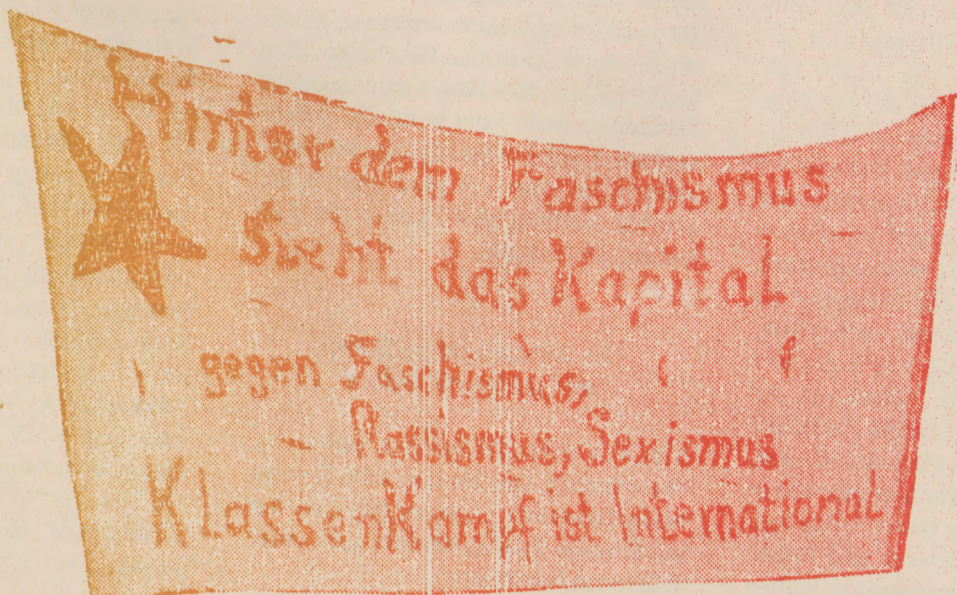 Hinter dem Faschismus
Steht das Kapital
gegen Faschismus,
Rassismus, Sexismus
KlassenKampf ist International